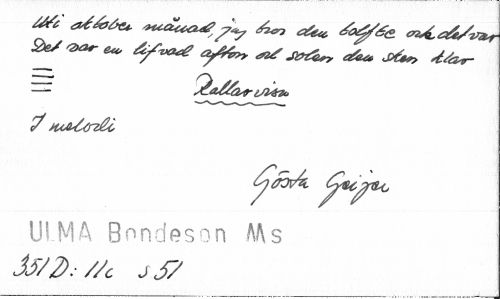 Uti oktober månad, jag tror den tolfte och det var
Det var en lifvad afton och solen den sken klar
Rallarvisa
I melodi
Gösta Geijer
ULMA Bondeson Ms
351 D: 11c s 51